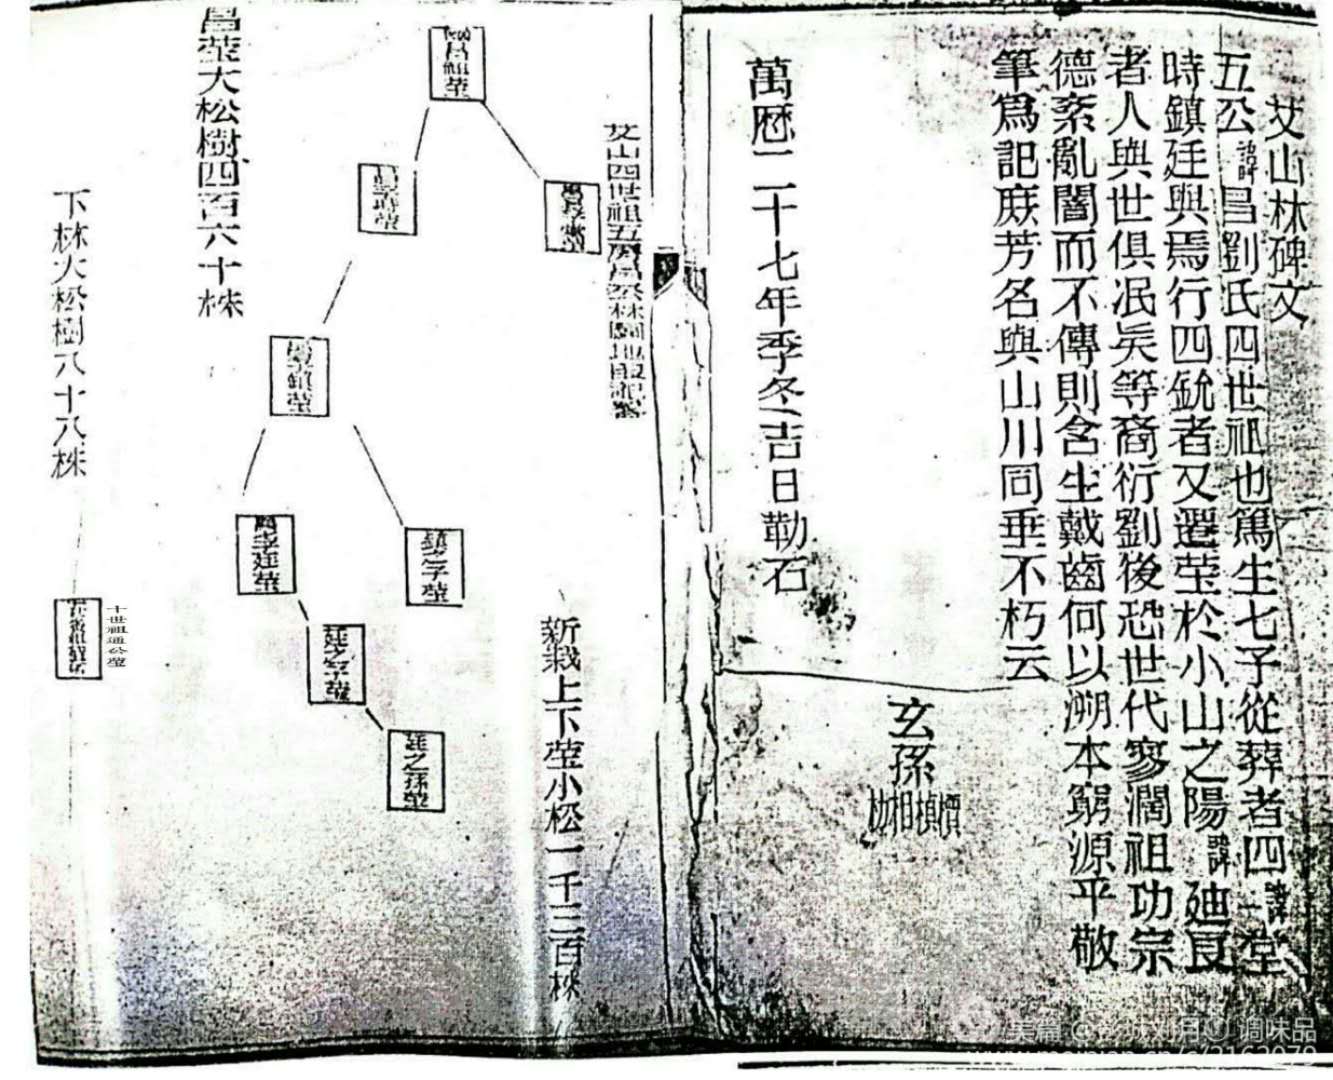 艾山林碑文
五公諱昌劉氏四世祖也篤生七子從葬者四諱一堂
時鎮廷與焉行四銳者又遷塋於小山之陽諱廸良
者人與世俱泯矣等裔衍劉後恐世代寥濶祖功宗
德紊亂闇而不傳則含生戴齒何以溯本窮源乎敬
筆爲記庻芳名與山川同垂不朽云
玄孫
萬歷二十七年季冬吉日勒石
艾山四世祖五房昌公林
新栽上下塋小松一千三百株
昌祖塋
鎮之子塋
廷之子塋
廷之孫塋
昌塋大松樹四百六十株
下林大松樹八十八株
十世祖通公塋
美篇 @彭城刘月① 调味品
www.meipian.cn/c/2162079